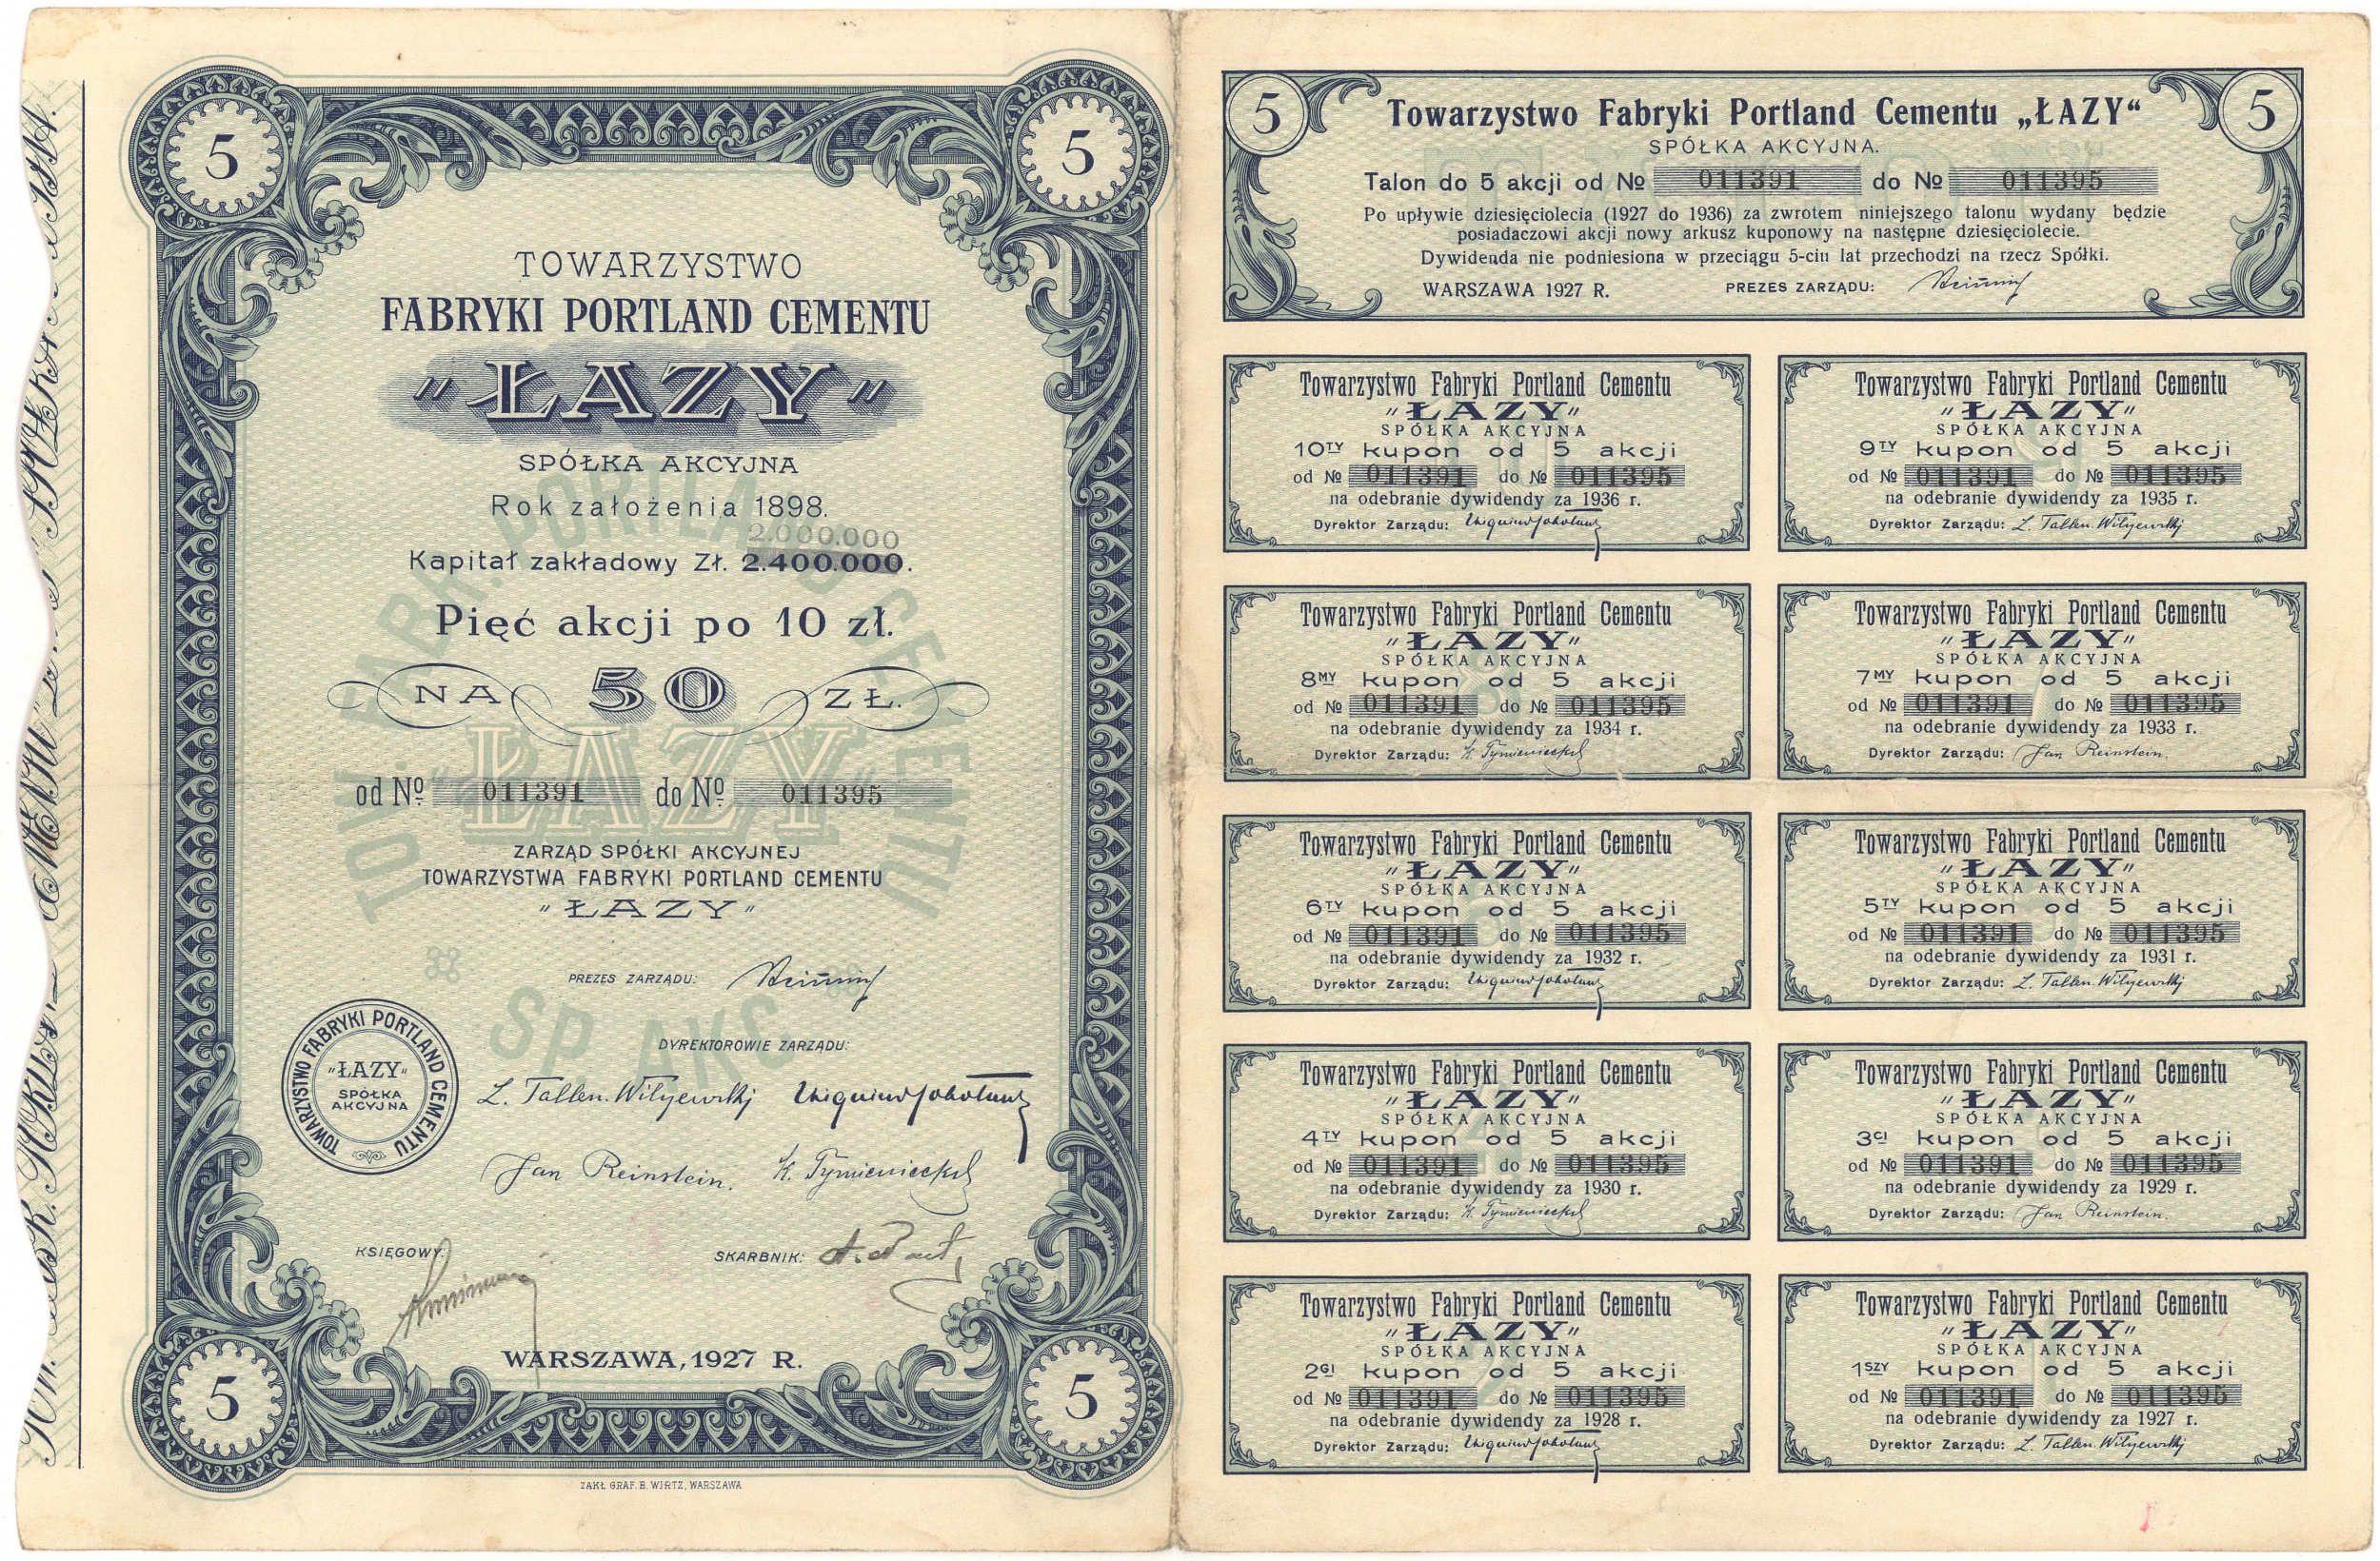 5
5
TOWARZYSTWO
FABRYKI PORTLAND CEMENTU
"ŁAZY"
SPÓŁKA AKCYJNA
Rok założenia 1898.
2.000.000
Kapitał zakładowy Zł. 2.400.000.
Pięć akcji po 10 zł.
NA 50 ZŁ.
od No 011391 do No 011395
ZARZĄD SPÓŁKI AKCYJNEJ
TOWARZYSTWA FABRYKI PORTLAND CEMENTU
"ŁAZY"
PREZES ZARZĄDU:
DYREKTOROWIE ZARZĄDU:
TOWARZYSTWO FABRYKI PORTLAND CEMENTU
"ŁAZY"
SPÓŁKA
AKCYJNA
Jan Reinstein.
KSIĘGOWY:
SKARBNIK:
WARSZAWA, 1927 R.
5
5
ZAKŁ. GRAF. B. WIRTZ, WARSZAWA
TOW. FABR. PORTLAND CEMENTU
ŁAZY
SP. AKC.
5
5
Towarzystwo Fabryki Portland Cementu „ŁAZY“
SPÓŁKA AKCYJNA.
Talon do 5 akcji od No 011391 do No 011395
Po upływie dziesięciolecia (1927 do 1936) za zwrotem niniejszego talonu wydany będzie
posiadaczowi akcji nowy arkusz kuponowy na następne dziesięciolecie.
Dywidenda nie podniesiona w przeciągu 5-ciu lat przechodzi na rzecz Spółki.
WARSZAWA 1927 R. PREZES ZARZĄDU:
Towarzystwo Fabryki Portland Cementu
"ŁAZY"
SPÓŁKA AKCYJNA
10TY kupon od 5 akcji
od No 011391 do No 011395
na odebranie dywidendy za 1936 r.
Dyrektor Zarządu:
Towarzystwo Fabryki Portland Cementu
"ŁAZY"
SPÓŁKA AKCYJNA
9TY kupon od 5 akcji
od No 011391 do No 011395
na odebranie dywidendy za 1935 r.
Dyrektor Zarządu:
Towarzystwo Fabryki Portland Cementu
"ŁAZY"
SPÓŁKA AKCYJNA
8MY kupon od 5 akcji
od No 011391 do No 011395
na odebranie dywidendy za 1934 r.
Dyrektor Zarządu:
Towarzystwo Fabryki Portland Cementu
"ŁAZY"
SPÓŁKA AKCYJNA
7MY kupon od 5 akcji
od No 011391 do No 011395
na odebranie dywidendy za 1933 r.
Dyrektor Zarządu: Jan Reinstein.
Towarzystwo Fabryki Portland Cementu
"ŁAZY"
SPÓŁKA AKCYJNA
6TY kupon od 5 akcji
od No 011391 do No 011395
na odebranie dywidendy za 1932 r.
Dyrektor Zarządu:
Towarzystwo Fabryki Portland Cementu
"ŁAZY"
SPÓŁKA AKCYJNA
5TY kupon od 5 akcji
od No 011391 do No 011395
na odebranie dywidendy za 1931 r.
Dyrektor Zarządu:
Towarzystwo Fabryki Portland Cementu
"ŁAZY"
SPÓŁKA AKCYJNA
4TY kupon od 5 akcji
od No 011391 do No 011395
na odebranie dywidendy za 1930 r.
Dyrektor Zarządu:
Towarzystwo Fabryki Portland Cementu
"ŁAZY"
SPÓŁKA AKCYJNA
3CI kupon od 5 akcji
od No 011391 do No 011395
na odebranie dywidendy za 1929 r.
Dyrektor Zarządu: Jan Reinstein.
Towarzystwo Fabryki Portland Cementu
"ŁAZY"
SPÓŁKA AKCYJNA
2GI kupon od 5 akcji
od No 011391 do No 011395
na odebranie dywidendy za 1928 r.
Dyrektor Zarządu:
Towarzystwo Fabryki Portland Cementu
"ŁAZY"
SPÓŁKA AKCYJNA
1SZY kupon od 5 akcji
od No 011391 do No 011395
na odebranie dywidendy za 1927 r.
Dyrektor Zarządu: